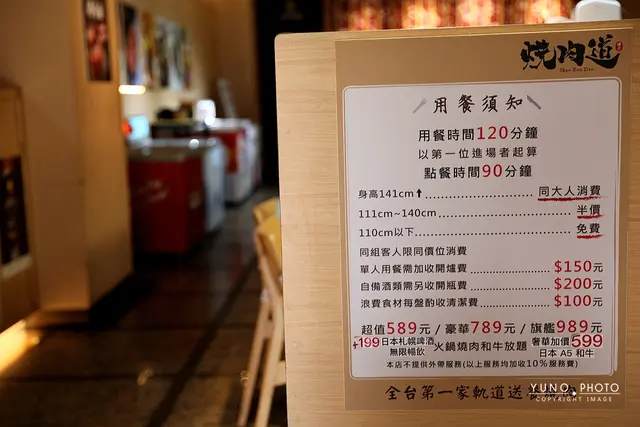 燒肉道
Shao Rou Dao
用餐須知
用餐時間120分鐘
以第一位進場者起算
點餐時間90分鐘
身高141cm⬆ 同大人消費
111cm~140cm 半價
110cm以下 免費
同組客人限同價位消費
單人用餐需加收開爐費 $150元
自備酒類需另收開瓶費 $200元
浪費食材每盤酌收清潔費 $100元
超值589元 / 豪華789元 / 旗艦989元
+199日本札幌啤酒無限暢飲 火鍋燒肉和牛放題 奢華加價599日本 A5 和牛
本店不提供外帶服務(以上服務均加收10%服務費)
全台第一家軌道送
YUNO. PHOTO
COPYRIGHT IMAGE